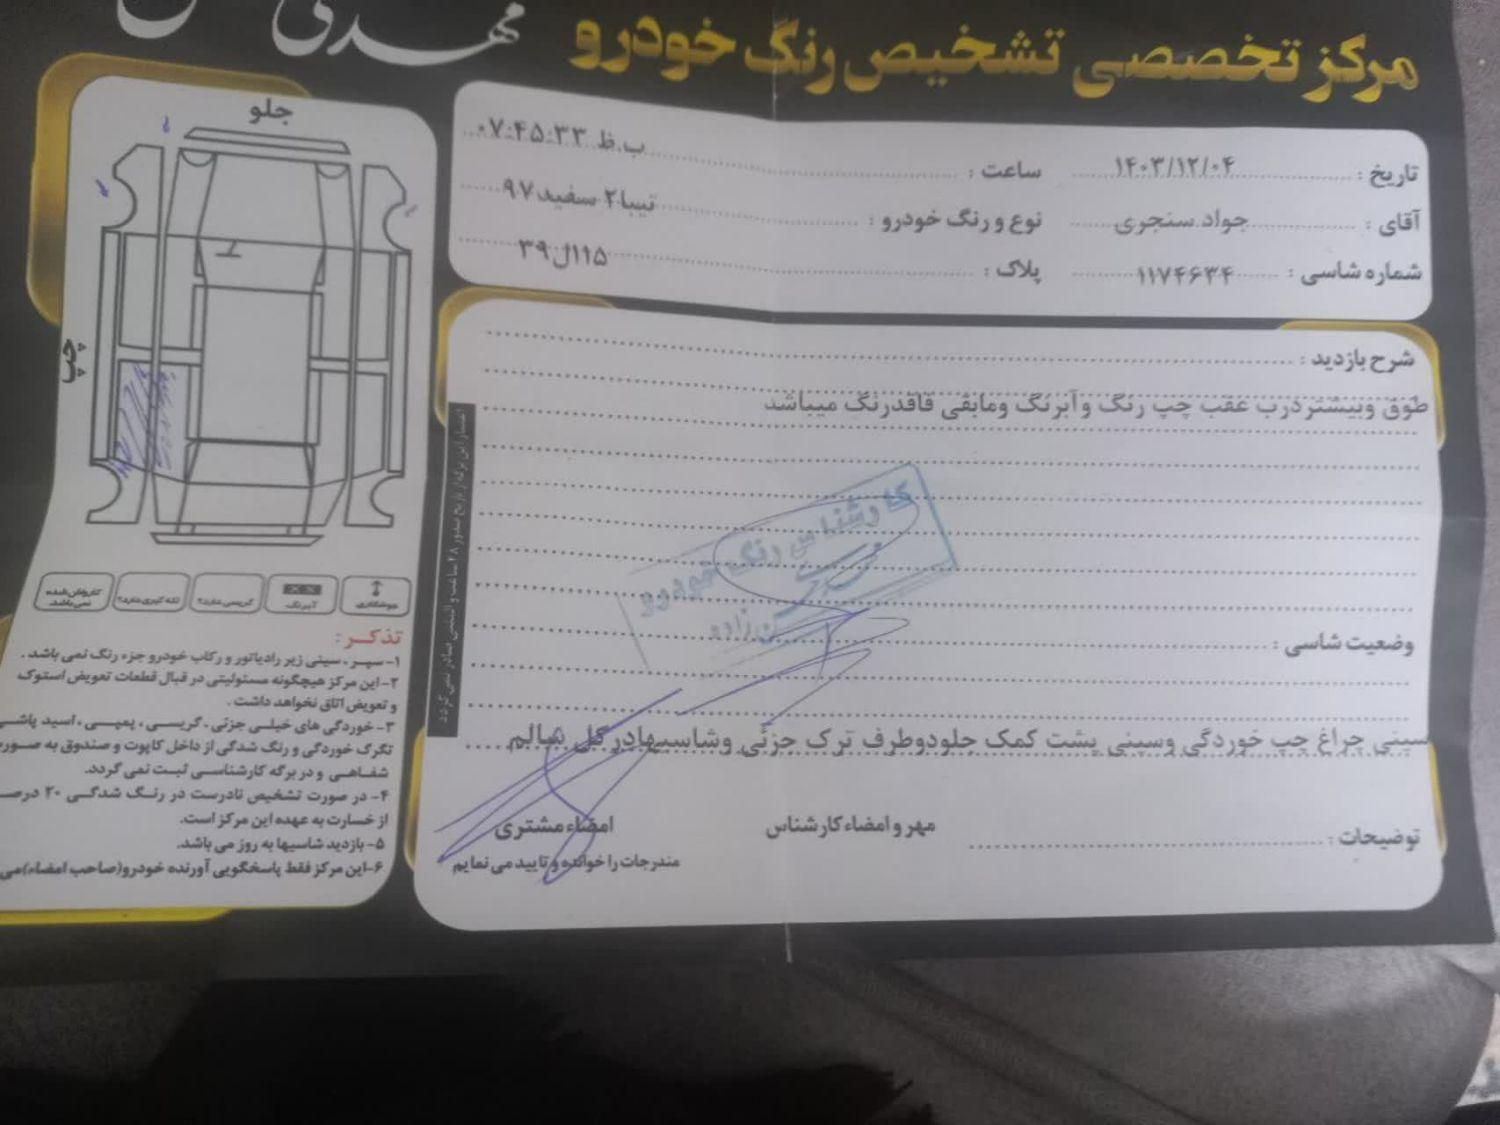 مرکز تخصصی تشخیص رنگ خودرو
مهدی
تاریخ : ۱۴۰۳/۱۲/۰۴
ساعت : ۰۷:۴۵:۳۳ ب.ظ
آقای : جواد سنجری
نوع و رنگ خودرو : تیبا۲ سفید ۹۷
شماره شاسی : ۱۱۷۴۶۳۴
پلاک : ۱۱۵ل۳۹
شرح بازدید :
طوق وبیشتردرب عقب چپ رنگ وآبرنگ ومابقی فاقدرنگ میباشد
کارشناس رنگ خودرو
وضعیت شاسی :
سینی چراغ چپ خوردگی وسینی پشت کمک جلودوطرف ترک جزئی وشاسیهادرکل سالم
توضیحات :
مهر و امضاء کارشناس
امضاء مشتری
مندرجات را خوانده و تایید می نمایم
اعتبار این برگه از تاریخ صدور ۴۸ ساعت و المثنی صادر نمی گردد
جلو
چپ
جوشکاری
آبرنگ
گریسی ندارد؟
لکه گیری ندارد؟
کارواش شده نمی باشد.
تذکر :
۱- سپر ، سینی زیر رادیاتور و رکاب خودرو جزء رنگ نمی باشد .
۲- این مرکز هیچگونه مسئولیتی در قبال قطعات تعویض استوک
و تعویض اتاق نخواهد داشت .
۳- خوردگی های خیلی جزئی ، گریسی ، پمپی ، اسید پاشی
تگرک خوردگی و رنگ شدگی از داخل کاپوت و صندوق به صورت
شفاهی و در برگه کارشناسی ثبت نمی گردد.
۴- در صورت تشخیص نادرست در رنگ شدگی ۲۰ درصد
از خسارت به عهده این مرکز است.
۵- بازدید شاسیها به روز می باشد.
۶- این مرکز فقط پاسخگویی آورنده خودرو(صاحب امضاء)می